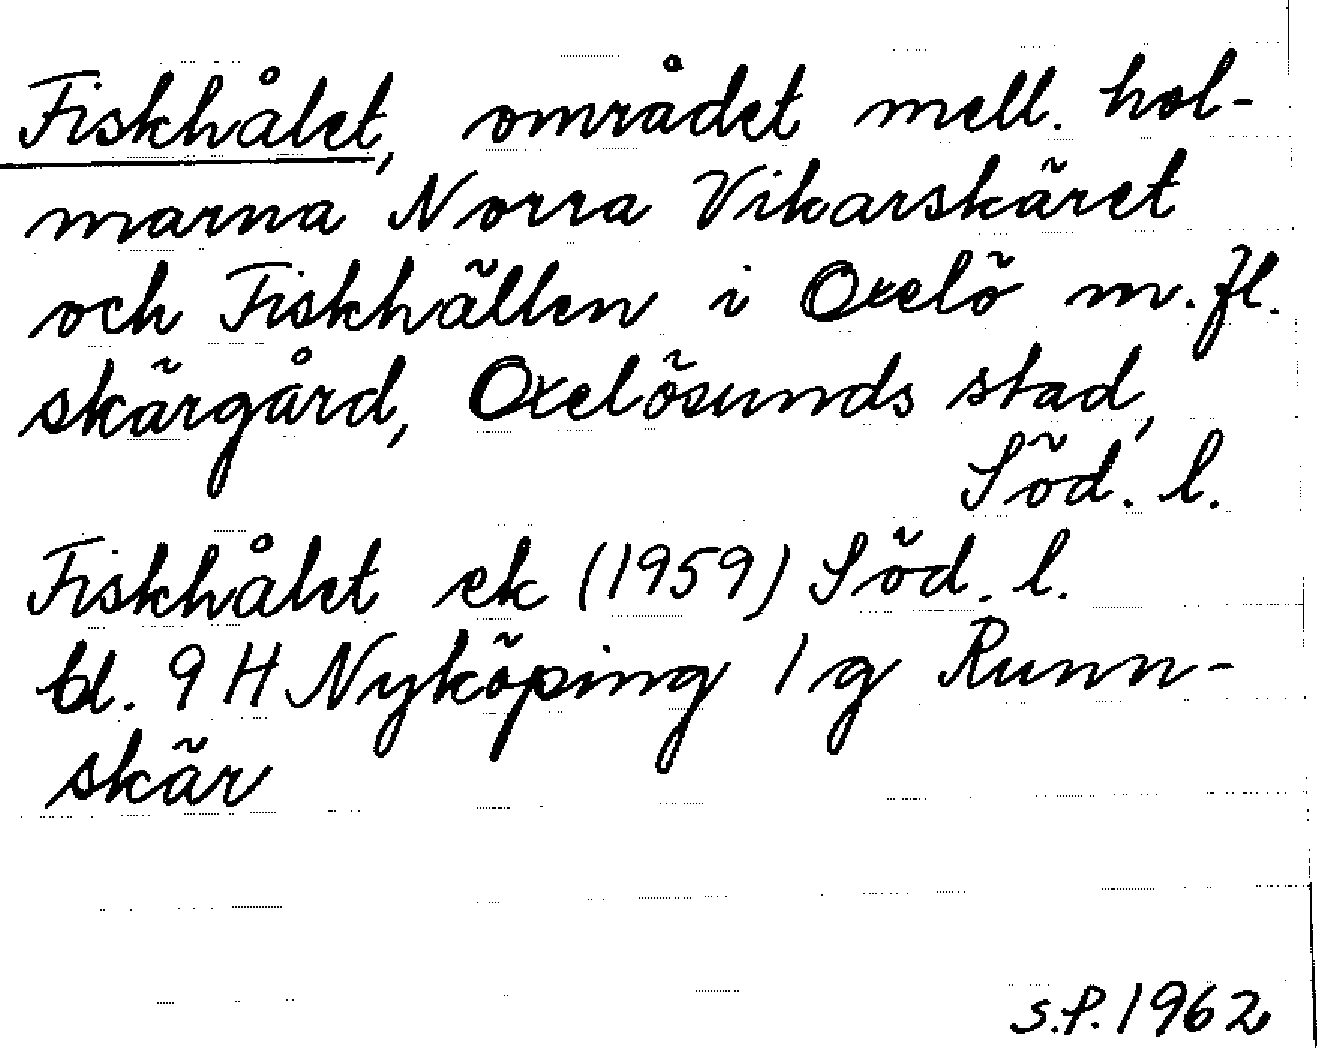 Fiskhålet, området mell. hol-
marna Norra Vikarskäret
och Fiskhällen i Oxelö m.fl.
skärgård, Oxelösunds stad,
Söd. l.
Fiskhålet ek (1959) Söd. l.
bl. 9 H Nyköping 1 g Runn-
skär
S.P. 1962